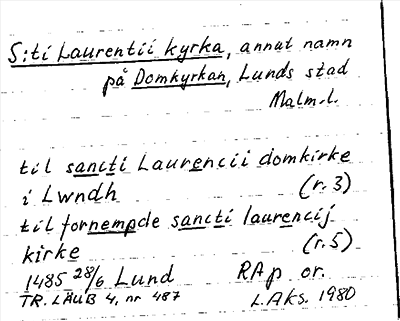 S:ti Laurentii kyrka, annat namn
på Domkyrkan, Lunds stad
Malm.l.
til sancti Laurencii domkirke
i Lwndh (r.3)
til fornempde sancti laurencij
kirke (r.5)
1485 28/6 Lund RAp or.
TR. LÄUB 4, nr 487 L.Aks. 1980